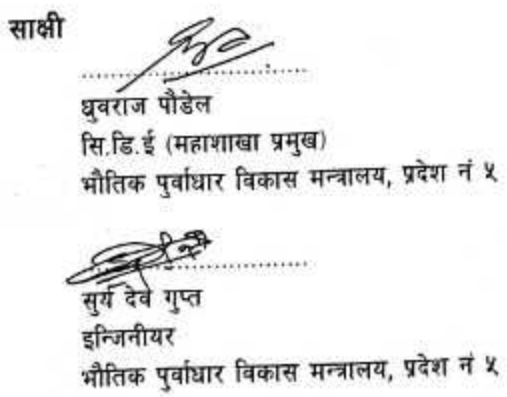 साक्षी
ध्रुवराज पौडेल
सि.डि.ई (महाशाखा प्रमुख)
भौतिक पुर्वाधार विकास मन्त्रालय, प्रदेश नं ५
सुर्य देव गुप्त
इन्जिनीयर
भौतिक पुर्वाधार विकास मन्त्रालय, प्रदेश नं ५